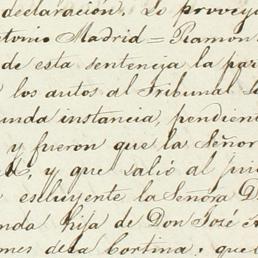 declaración. Lo proveyó
Antonio Madrid = Ramon
de esta sentencia la par
los autos al Tribunal S
unda instancia, pendien
y fueron que la Señor
y que salió al jui
escluyente la Señora D
nda hija de Don José
nes de la Cortina; que